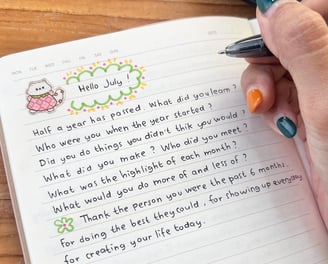 MON TUE WED THU FRI SAT SUN
Hello July!
Half a year has passed. What did you learn?
Who were you when the year started?
Did you do things you didn't thik you would?
What did you make? Who did you meet?
What was the highlight of each month?
What would you do more of and less of?
Thank the person you were the past 6 months,
for doing the best they could, for showing up everyday
for creating your life today.